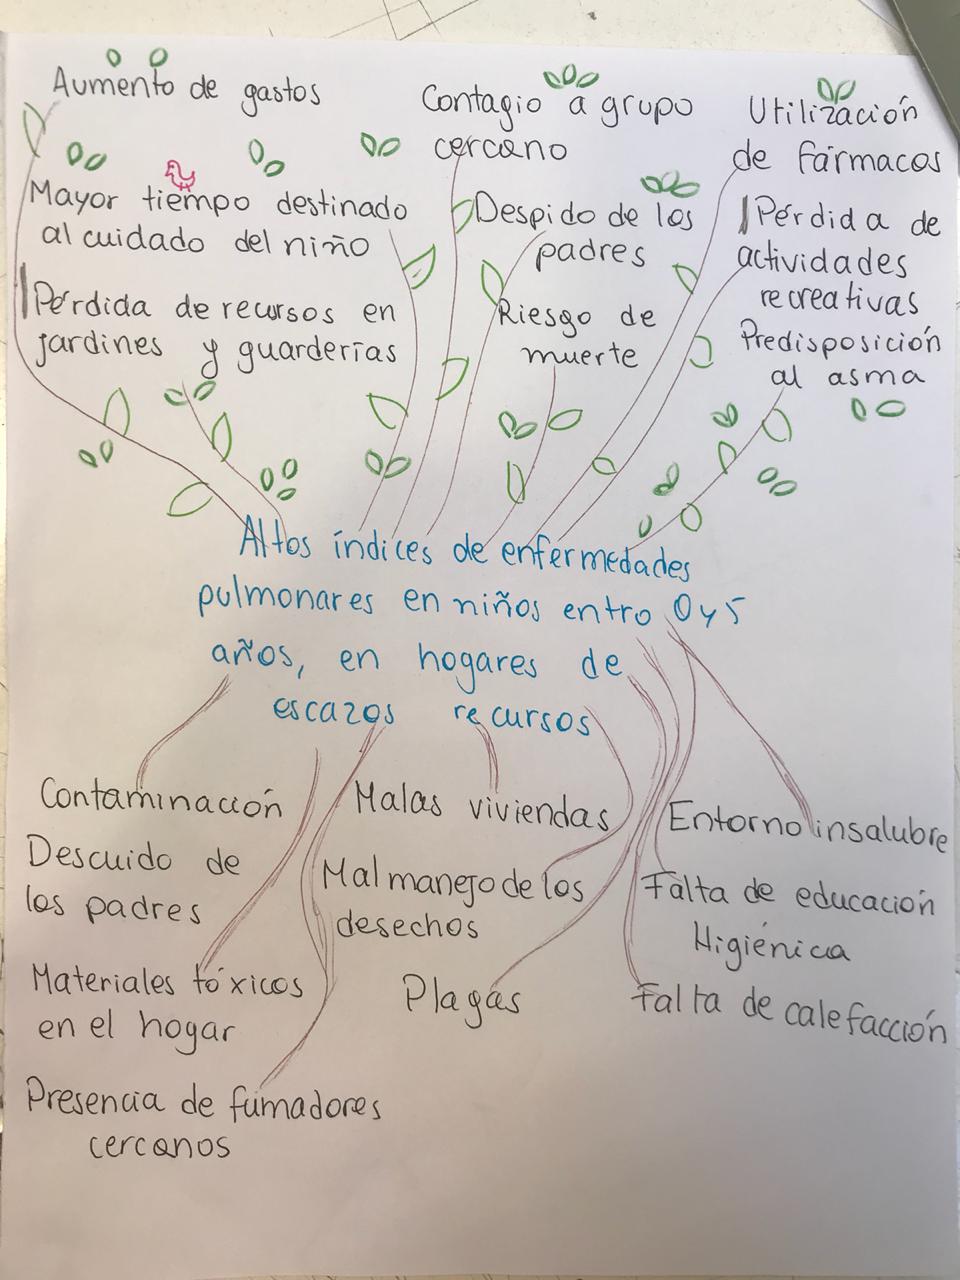 Aumento de gastos
Contagio a grupo
cercano
Utilización
de fármacos
Mayor tiempo destinado
al cuidado del niño
Despido de los
padres
Pérdida de
actividades
recreativas
Pérdida de recursos en
jardines y guarderías
Riesgo de
muerte
Predisposición
al asma
Altos índices de enfermedades
pulmonares en niños entro 0 y 5
años, en hogares de
escazos recursos
Contaminación
Malas viviendas
Entorno insalubre
Descuido de
los padres
Mal manejo de los
desechos
Falta de educación
Higiénica
Materiales tóxicos
en el hogar
Plagas
Falta de calefacción
Presencia de fumadores
cercanos